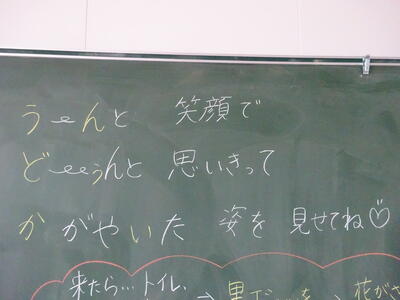 う〜んと 笑顔で
ど〜〜ぅんと 思いきって
かがやいた 姿を 見せてね♡
来たら…トイレ、